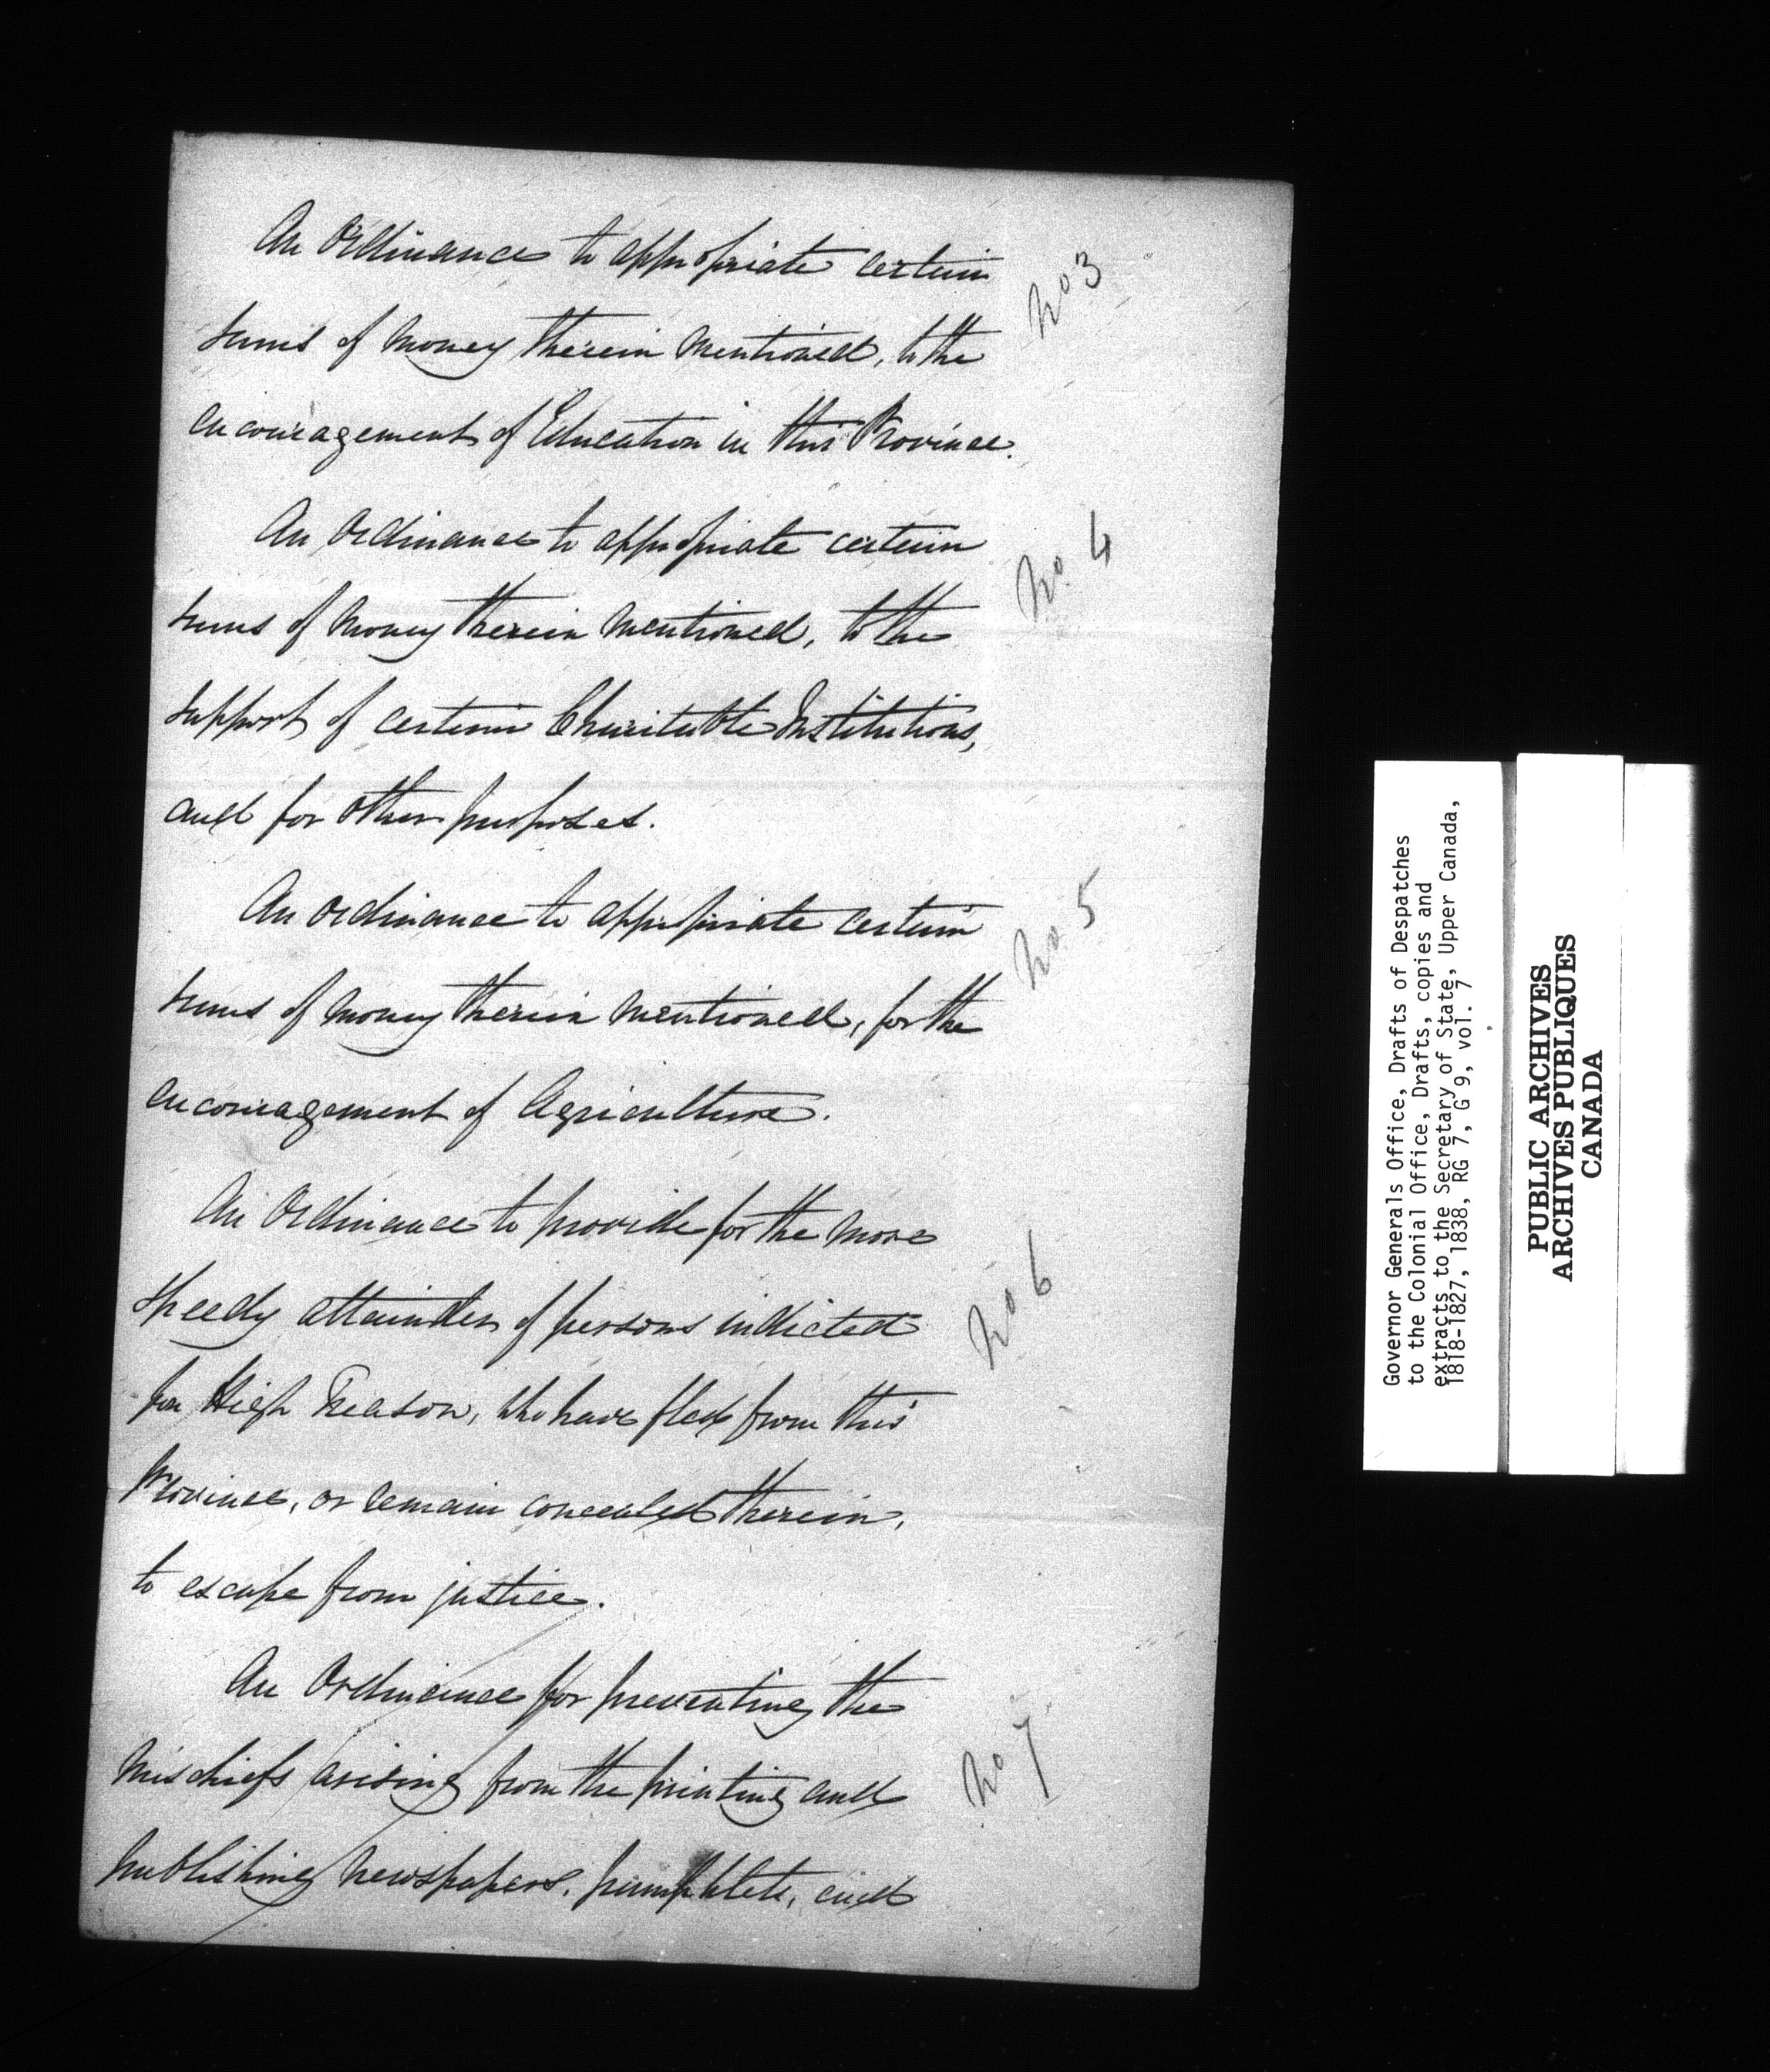 An Ordinance to appropriate certain
sums of money therein mentioned, to the
encouragement of Education in this Province.
No 3
An Ordinance to appropriate certain
sums of money therein mentioned, to the
support of certain Charitable Institutions,
and for other purposes.
No. 4
An Ordinance to appropriate certain
sums of money therein mentioned, for the
encouragement of Agriculture.
No. 5
An Ordinance to provide for the more
speedy attainder of persons indicted
for High Treason, who have fled from this
Province, or remain concealed therein,
to escape from justice.
No 6
An Ordinance for preventing the
mischiefs arising from the printing and
publishing newspapers, pamphlets, and
No 7
Governor Generals Office, Drafts of Despatches
to the Colonial Office, Drafts, copies and
extracts to the Secretary of State, Upper Canada,
1818-1827, 1838, RG 7, G 9, vol. 7
PUBLIC ARCHIVES
ARCHIVES PUBLIQUES
CANADA